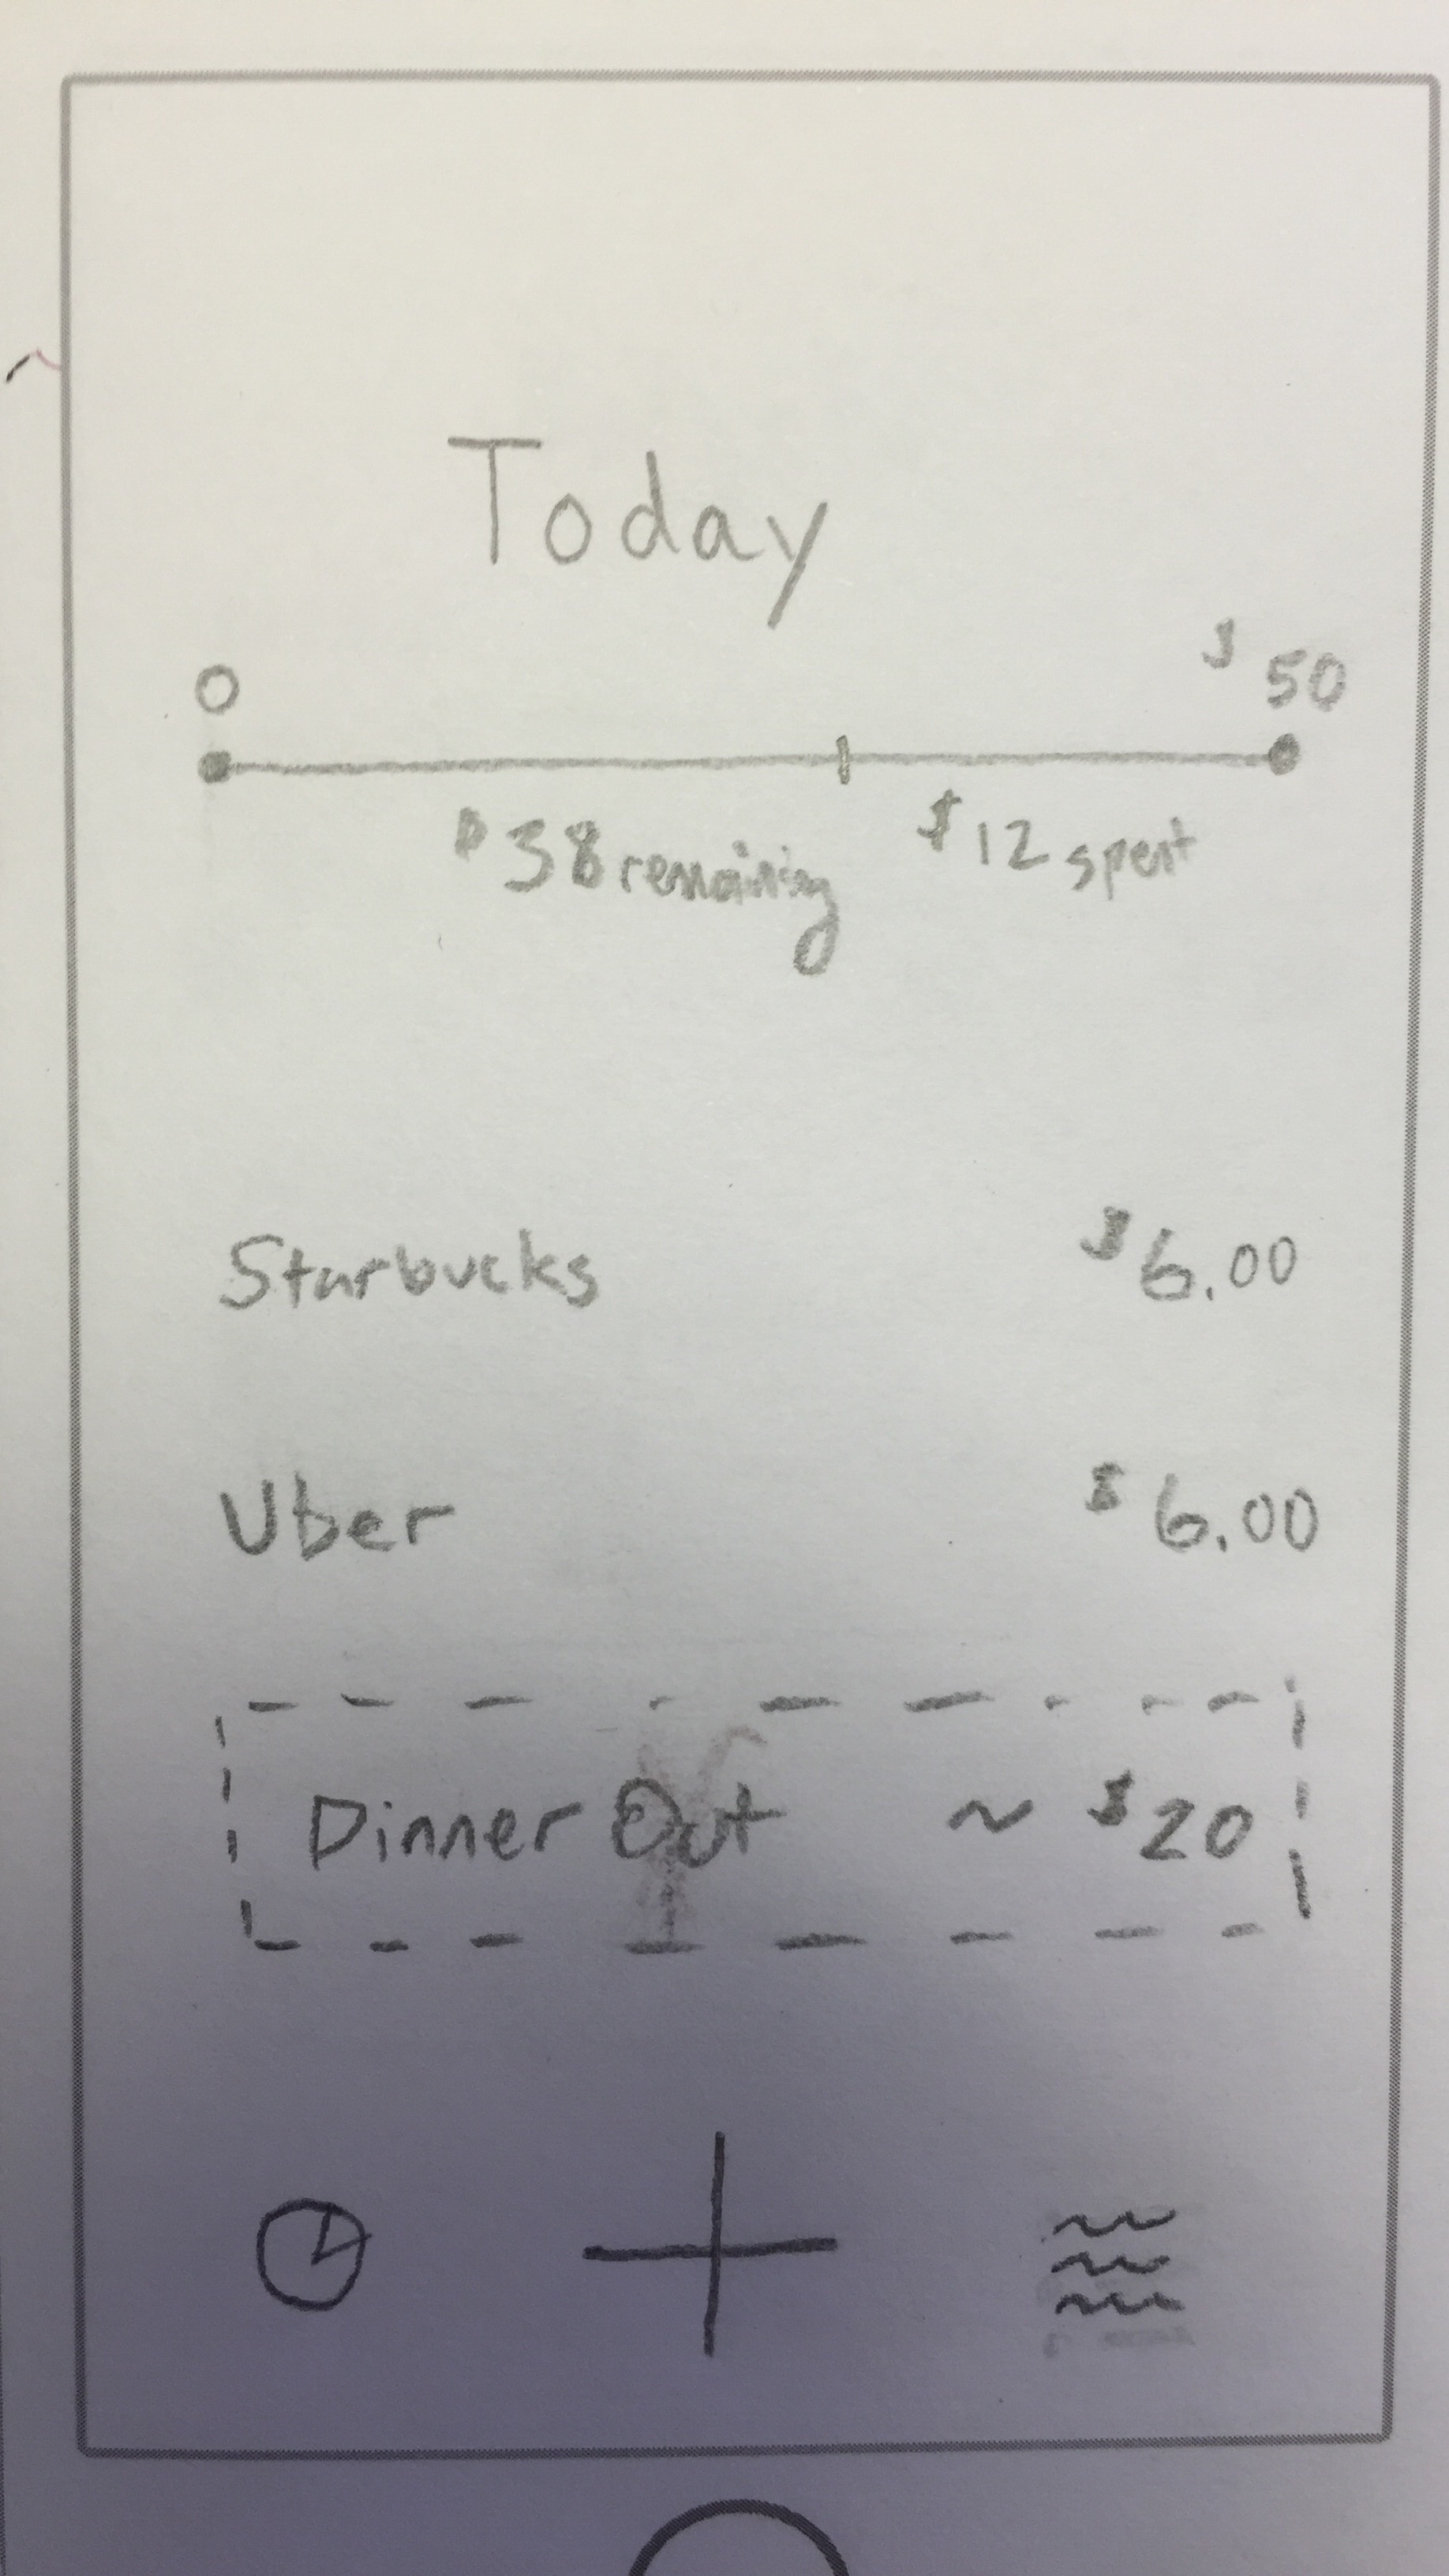 Today
0 $50
$38 remaining $12 spent
Starbucks $6.00
Uber $6.00
Dinner Out ~ $20